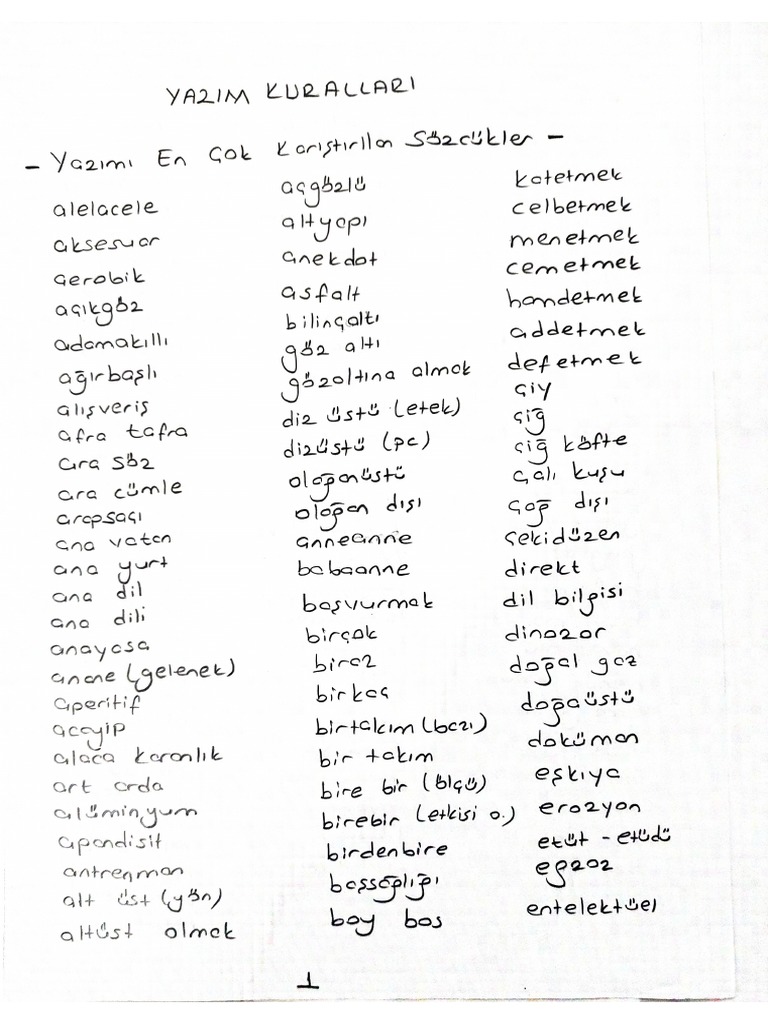 YAZIM KURALLARI
- Yazımı En Çok Karıştırılan Sözcükler -
alelacele
aksesuar
aerobik
açıkgöz
adamakıllı
ağırbaşlı
alışveriş
afra tafra
ara söz
ara cümle
arapsaçı
ana vatan
ana yurt
ana dil
ana dili
anayasa
anane (gelenek)
aperitif
acayip
alaca karanlık
art arda
alüminyum
apandisit
antrenman
alt üst (yön)
altüst olmak
açgözlü
altyapı
anekdot
asfalt
bilinçaltı
göz altı
gözaltına almak
diz üstü (etek)
dizüstü (pc)
olağanüstü
olağan dışı
anneanne
babaanne
başvurmak
birçok
biraz
birkaç
birtakım (bazı)
bir takım
bire bir (ölçü)
birebir (etkisi o.)
birdenbire
başsağlığı
boy bos
katetmek
celbetmek
menetmek
cemetmek
hamdetmek
addetmek
defetmek
çiy
çiğ
çiğ köfte
çalı kuşu
çağ dışı
çekidüzen
direkt
dil bilgisi
dinozor
doğal gaz
doğaüstü
doküman
eşkıya
erozyon
etüt - etüdü
egzoz
entelektüel
1